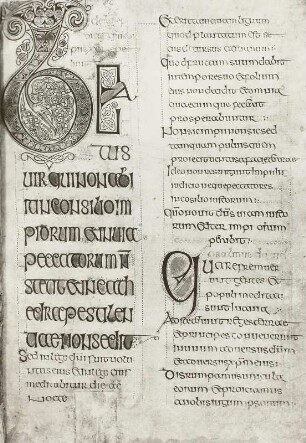 BE
ATUS
UIR QUI NON ABI
IT IN CONSILIO IM
PIORUM ET IN UIA
PECCATORUM
STETIT ET IN CATH
EDRA PESTULEN
TIAE NON SEDIT
Sed in lege dni fuit uolun
tas eius et in lege eius
meditabitur die ac
nocte
Et erit tamquam lignum
quod plantatum est se
cus decursus aquarum
Quod fructum suum dabit
in tempore suo et folium
eius non decidet et omnia
quaecumque faciet
prosperabuntur
Non sic impii non sic sed
tamquam puluis quem
proiecit uentus a facie terrae
Ideo non resurgunt impii in
iudicio neque peccatores
in consilio iustorum
Quoniam nouit dns uiam iusto
rum et iter impiorum
peribit
Quare fremuer
unt gentes et
populi meditati
sunt inania
Adsteterunt reges terrae
et principes conuenerunt
in unum aduersus dnm
et aduersus
Disrumpamus uincula
eorum et proiciamus
a nobis iugum ipsorum